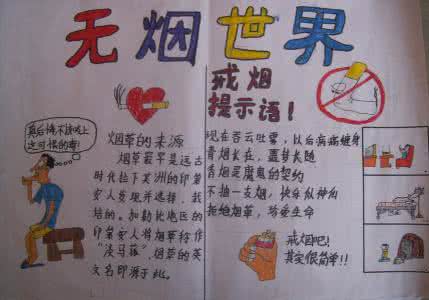 无烟世界
真后悔不该吸上
这可恨的毒!
烟草的来源
烟草最早是远古
时代拉丁美洲的印第
安人发现并选择、栽
培的。加勒比地区的
印第安人将烟草称作
烟草的英
文名即源于此。
戒烟
提示语!
现在吞云吐雾,以后病痛缠身
青烟长在,噩梦长随
香烟是魔鬼的契约
不抽一支烟,快乐似神仙
拒绝烟草,珍爱生命
戒烟吧!
其实很简单!!